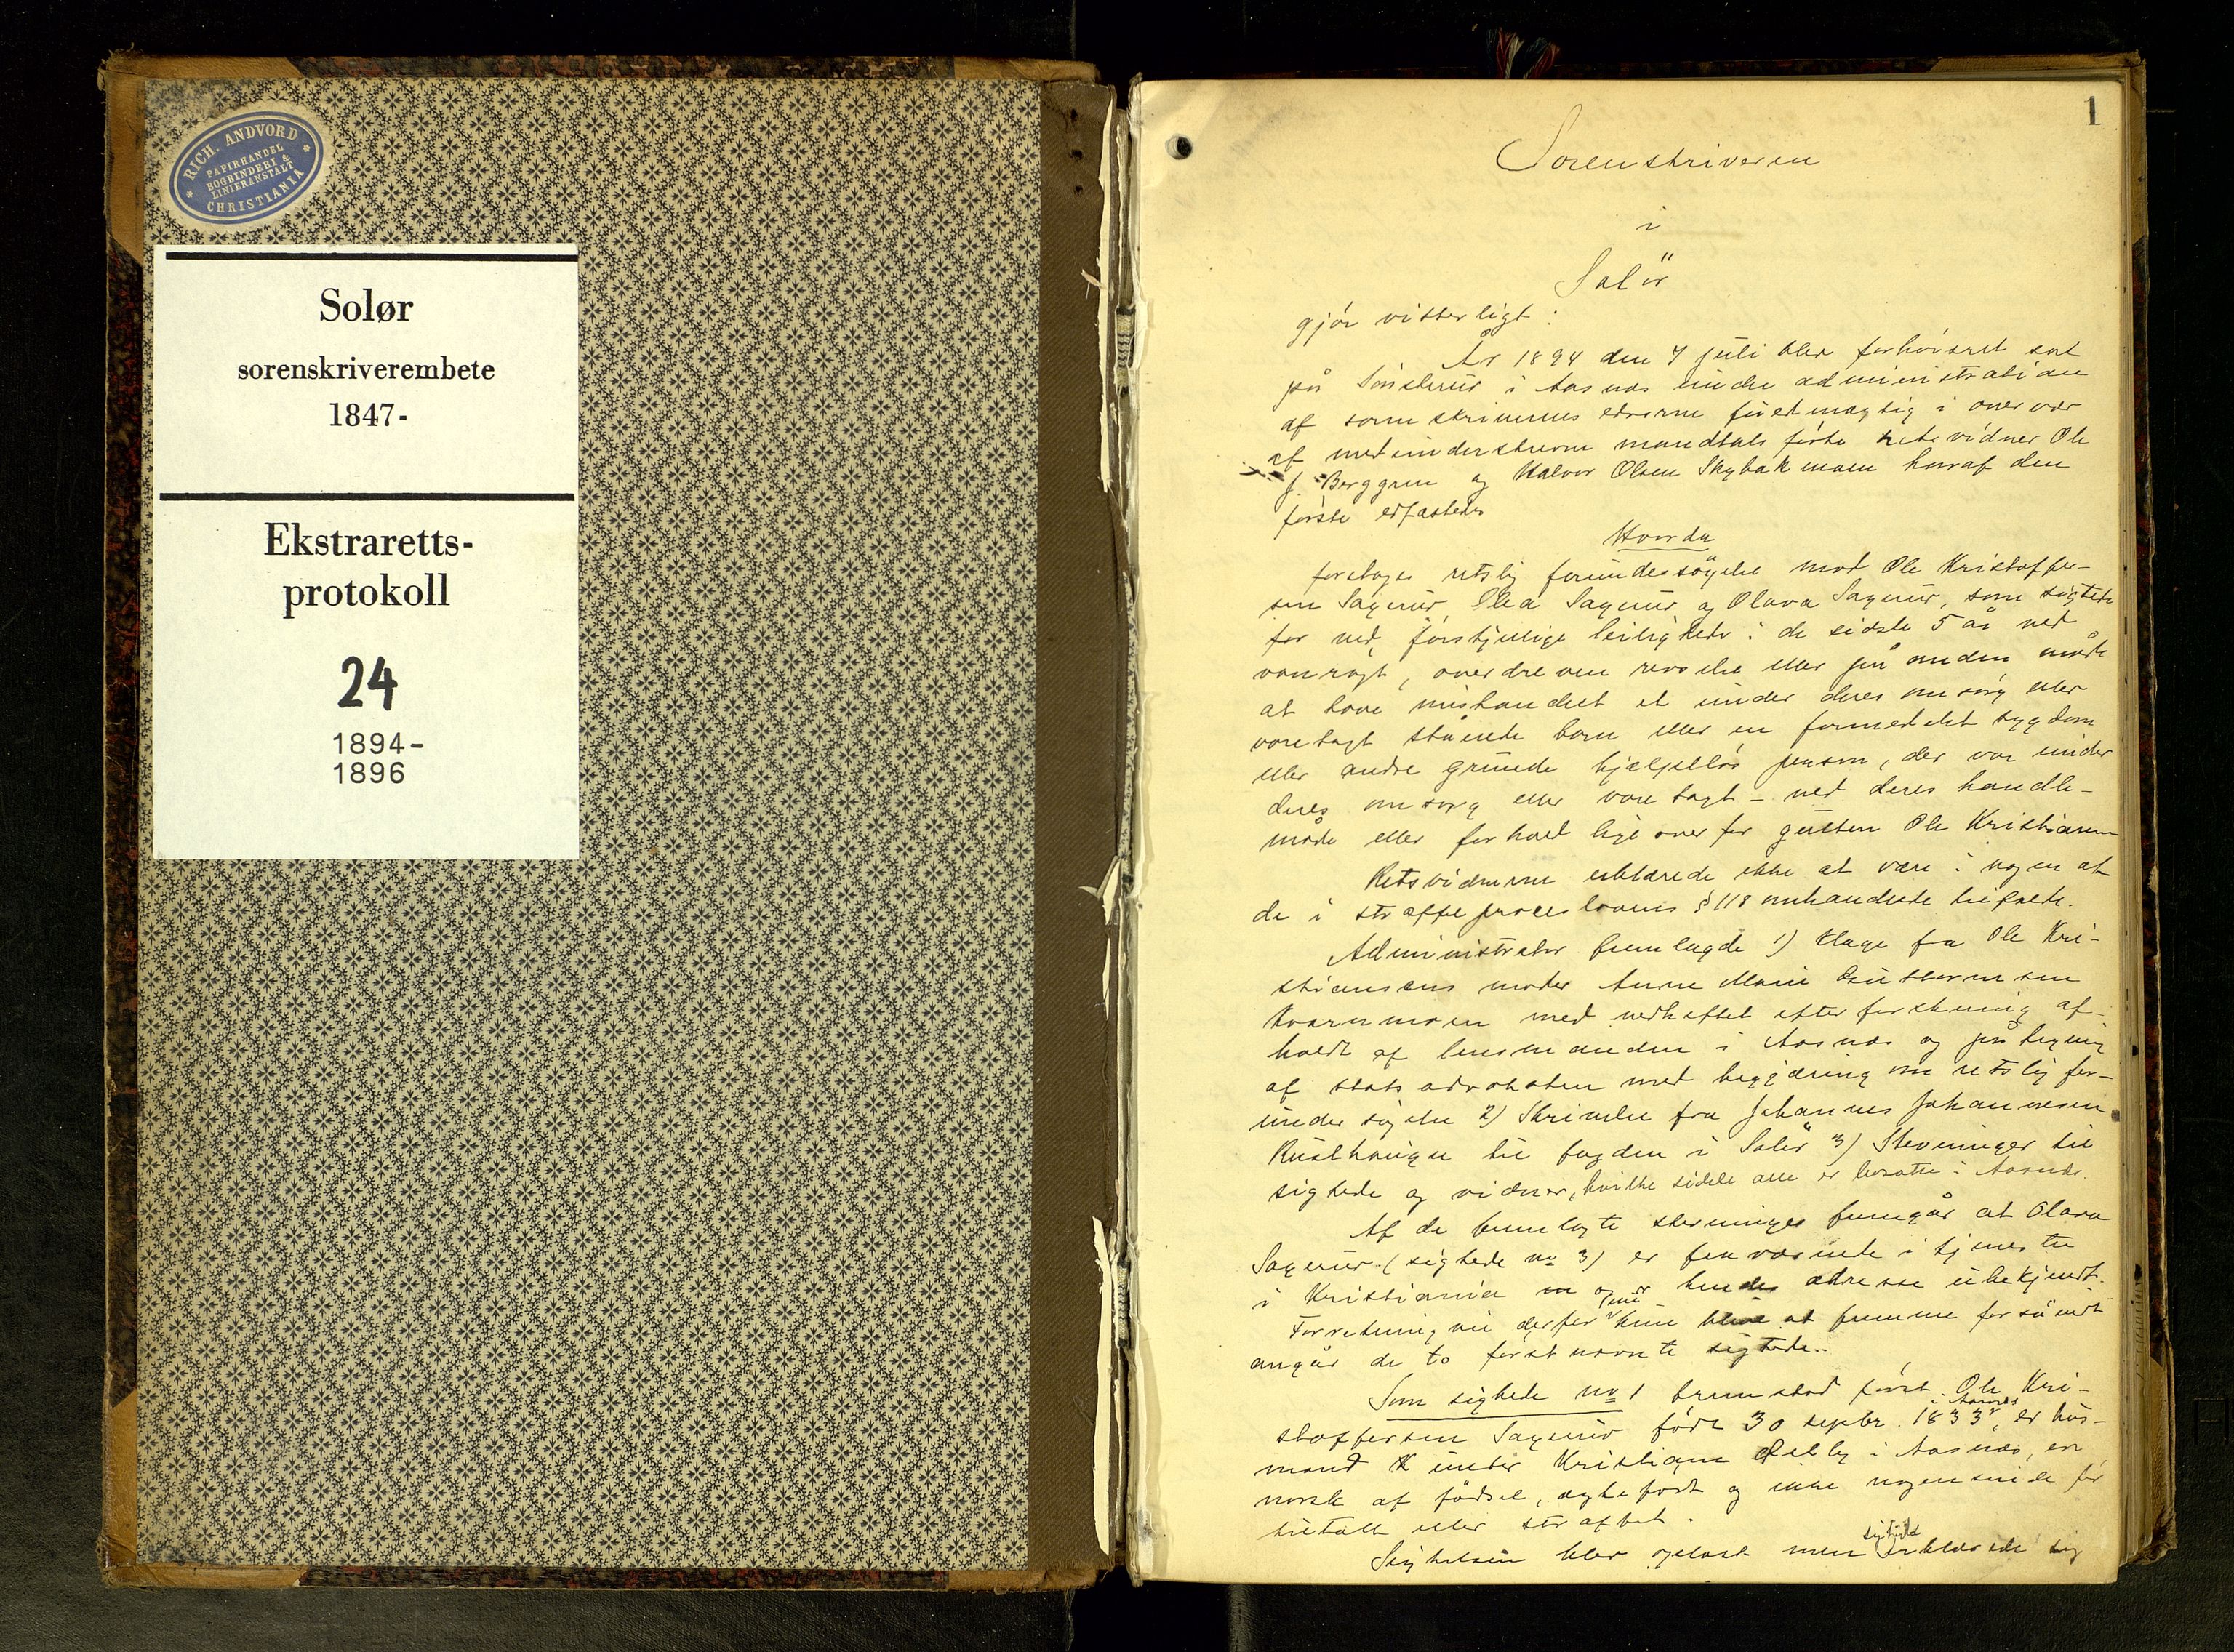 RICH. ANDVORD
PAPIRHANDEL
BOGBINDERI &
LINIERANSTALT
CHRISTIANIA
Solør
sorenskriverembete
1847-
Ekstraretts-
protokoll
24
1894-
1896
1
Sorenskriveren
i
Solör
gjör vitterligt:
År 1894 den 7 juli blev forhörsret sat
på Sönsterud i Aasnes under administration
af sorenskriverens edsvorne fuldmægtig i overvær
af medunderskrevne mandtalsförte retsvidner Ole
J. Berggren og Halvor Olsen Skybakmoen hvoraf den
förste edfæstedes
Hvorda
foretoges retslig forundersögelse mod Ole Kristoffer-
sen Sagerud, Olea Sagerud og Olava Sagerud, som sigtede
for ved forskjellige leiligheder i de sidste 5 år ved
vanrögt, overdreven revselse eller på anden måde
at have mishandlet et under deres omsorg eller
varetægt stående barn eller en formedelst sygdom
eller andre grunde hjælpelös person, der var under
deres omsorg eller varetægt – ved deres handle-
måde eller forhold lige overfor gutten Ole Kristiansen
Retsvidnerne erklærede ikke at være i nogen af
de i straffeproceslovens § 118 omhandlede tilfælde.
Administrator fremlagde 1) Klage fra Ole Kri-
stiansens moder Anne Marie Guttormsen
Kvernmoen med vedheftet efterforskning af-
holdt af lensmanden i Aasnes og påtegning
af statsadvokaten med begjæring om retslig for-
undersögelse 2) Skrivelse fra Johannes Johannesen
Rusthaugen til fogden i Solör 3) Stevninger til
sigtede og vidner, hvilke sidste alle er bosatte i Aasnes.
Af de fremlagte stevninger fremgår at Olava
Sagerud (sigtede no 3) er fraværende i tjeneste
i Kristiania og er hendes adresse ubekjendt.
Forretning vil derfor kun blive at fremme forsåvidt
angår de to förstnævnte sigtede.
Som sigtede no 1 fremstod först Ole Kri-
stoffersen Sagerud födt 30 septbr. 1833 i Aasnes er hus-
mand under Kristian i Aasnes, er
norsk af födsel, ægtefödt og ikke nogensinde för
tiltalt eller straffet.
Sigtelsen blev oplæst men sigtede erklærede sig